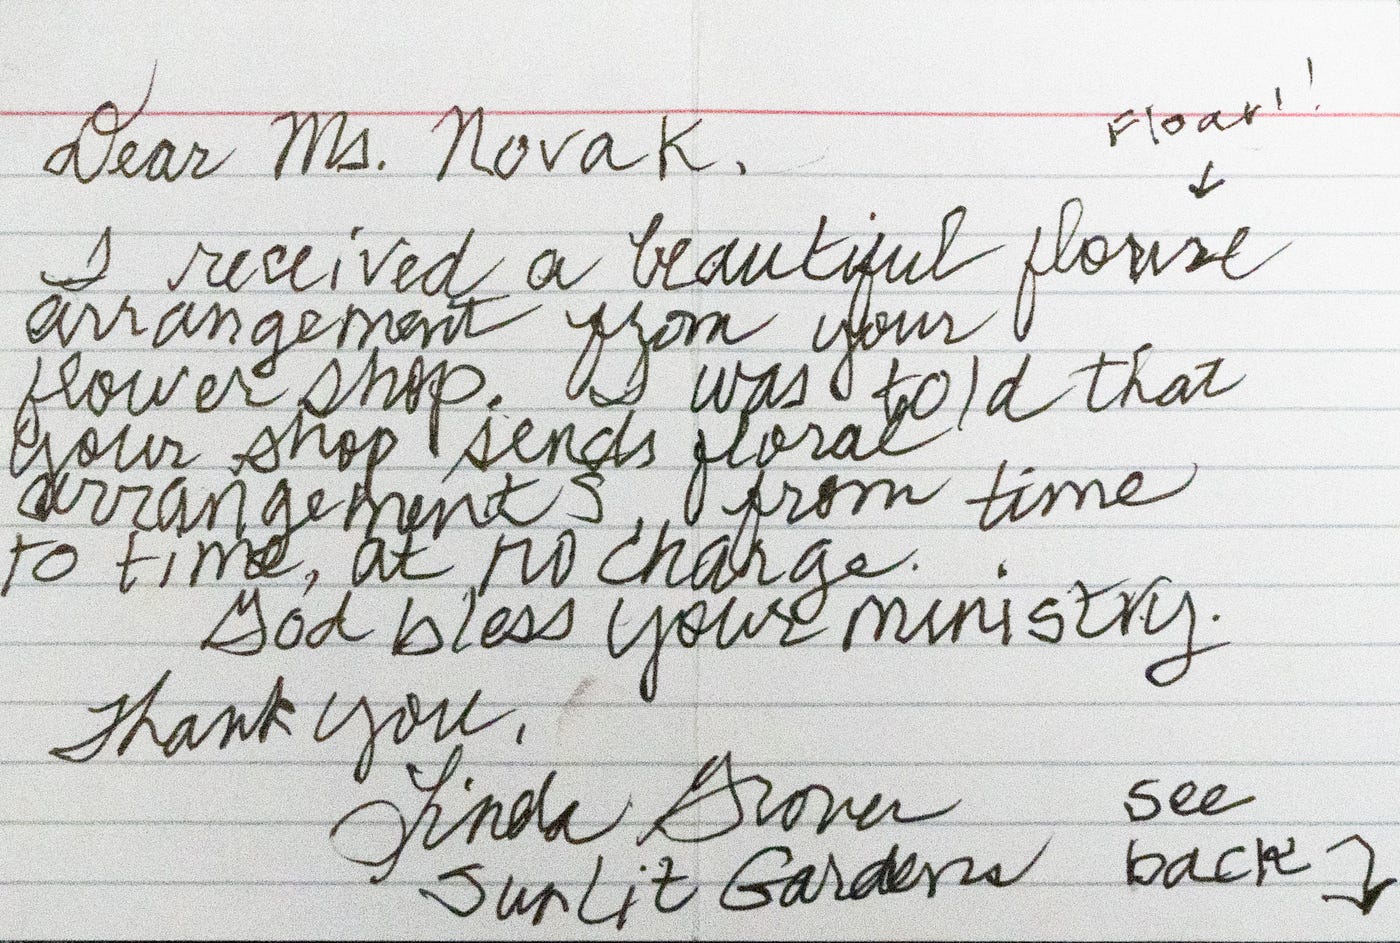 Dear Ms. Novak,
Floar!!
↓
I received a beautiful
arrangement from your
flower shop. I was told that
your shop sends floral
arrangements, from time
to time, at no charge.
God bless your ministry.
Thank you,
Linda Grover
SunLit Gardens
see
back